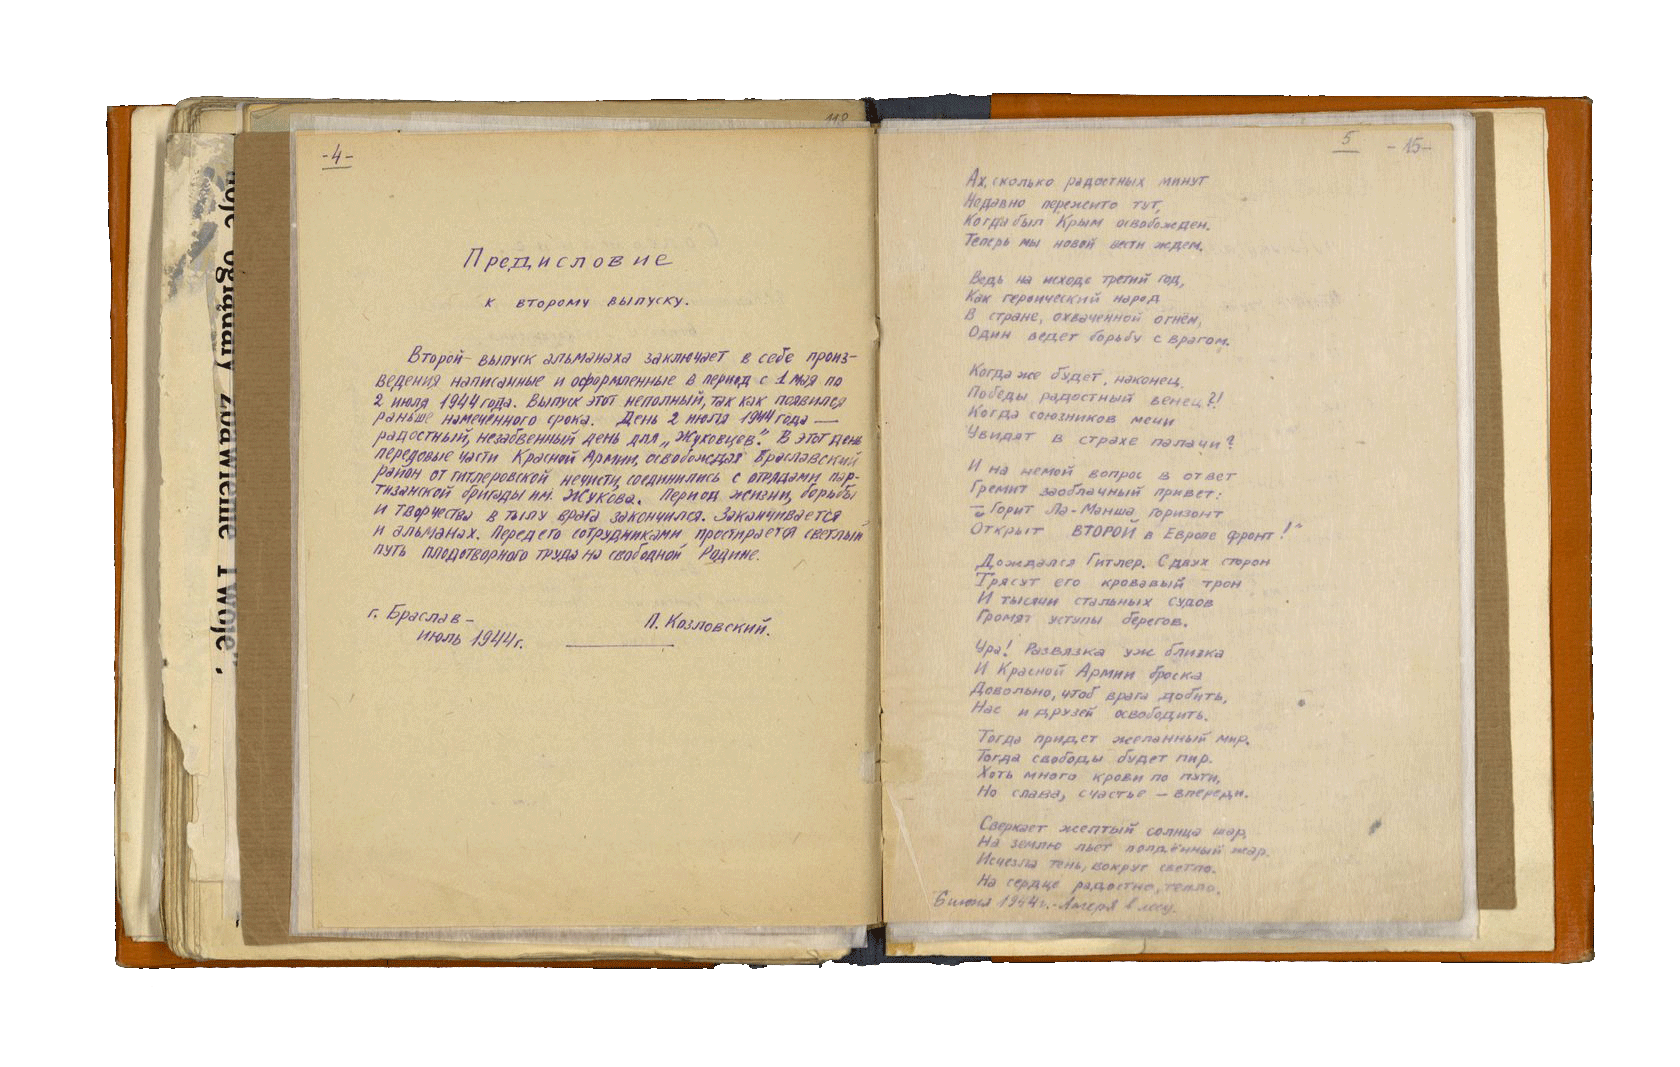 noje oglądały zbawienie Twoje".
118
-4-
Предисловие
к второму выпуску.
Второй выпуск альманаха заключает в себе произ-
ведения написанные и оформленные в период с 1 мая по
2 июля 1944 года. Выпуск этот неполный, так как появился
раньше намеченного срока. День 2 июля 1944 года —
радостный, незабвенный день для „Жуковцев". В этот день
передовые части Красной Армии, освобождая Браславский
район от гитлеровской нечисти, соединились с отрядами пар-
тизанской бригады им. Жукова. Период жизни, борьбы
и творчества в тылу врага закончился. Заканчивается
и альманах. Перед его сотрудниками простирается светлый
путь плодотворного труда на свободной Родине.
г. Браслав –
июль 1944 г.
П. Козловский.
5
-15-
Ах, сколько радостных минут
Недавно пережито тут,
Когда был Крым освобожден.
Теперь мы новой вести ждем.
Ведь на исходе третий год,
Как героический народ
В стране, охваченной огнём,
Один ведет борьбу с врагом.
Когда же будет, наконец,
Победы радостный венец?!
Когда союзников мечи
Увидят в страхе палачи?
И на немой вопрос в ответ
Гремит заоблачный привет:
– „Горит Ла-Манша горизонт
Открыт ВТОРОЙ в Европе фронт!"
Дождался Гитлер. С двух сторон
Трясут его кровавый трон
И тысячи стальных судов
Громят уступы берегов.
Ура! Развязка уж близка
И Красной Армии броска
Довольно, чтоб врага добить,
Нас и друзей освободить.
Тогда придет желанный мир.
Тогда свободы будет пир.
Хоть много крови по пути,
Но слава, счастье – впереди.
Сверкает желтый солнца шар,
На землю льет полдённый жар.
Исчезла тень, вокруг светло.
На сердце радостно, тепло.
6 июня 1944 г. - Лагеря в лесу.